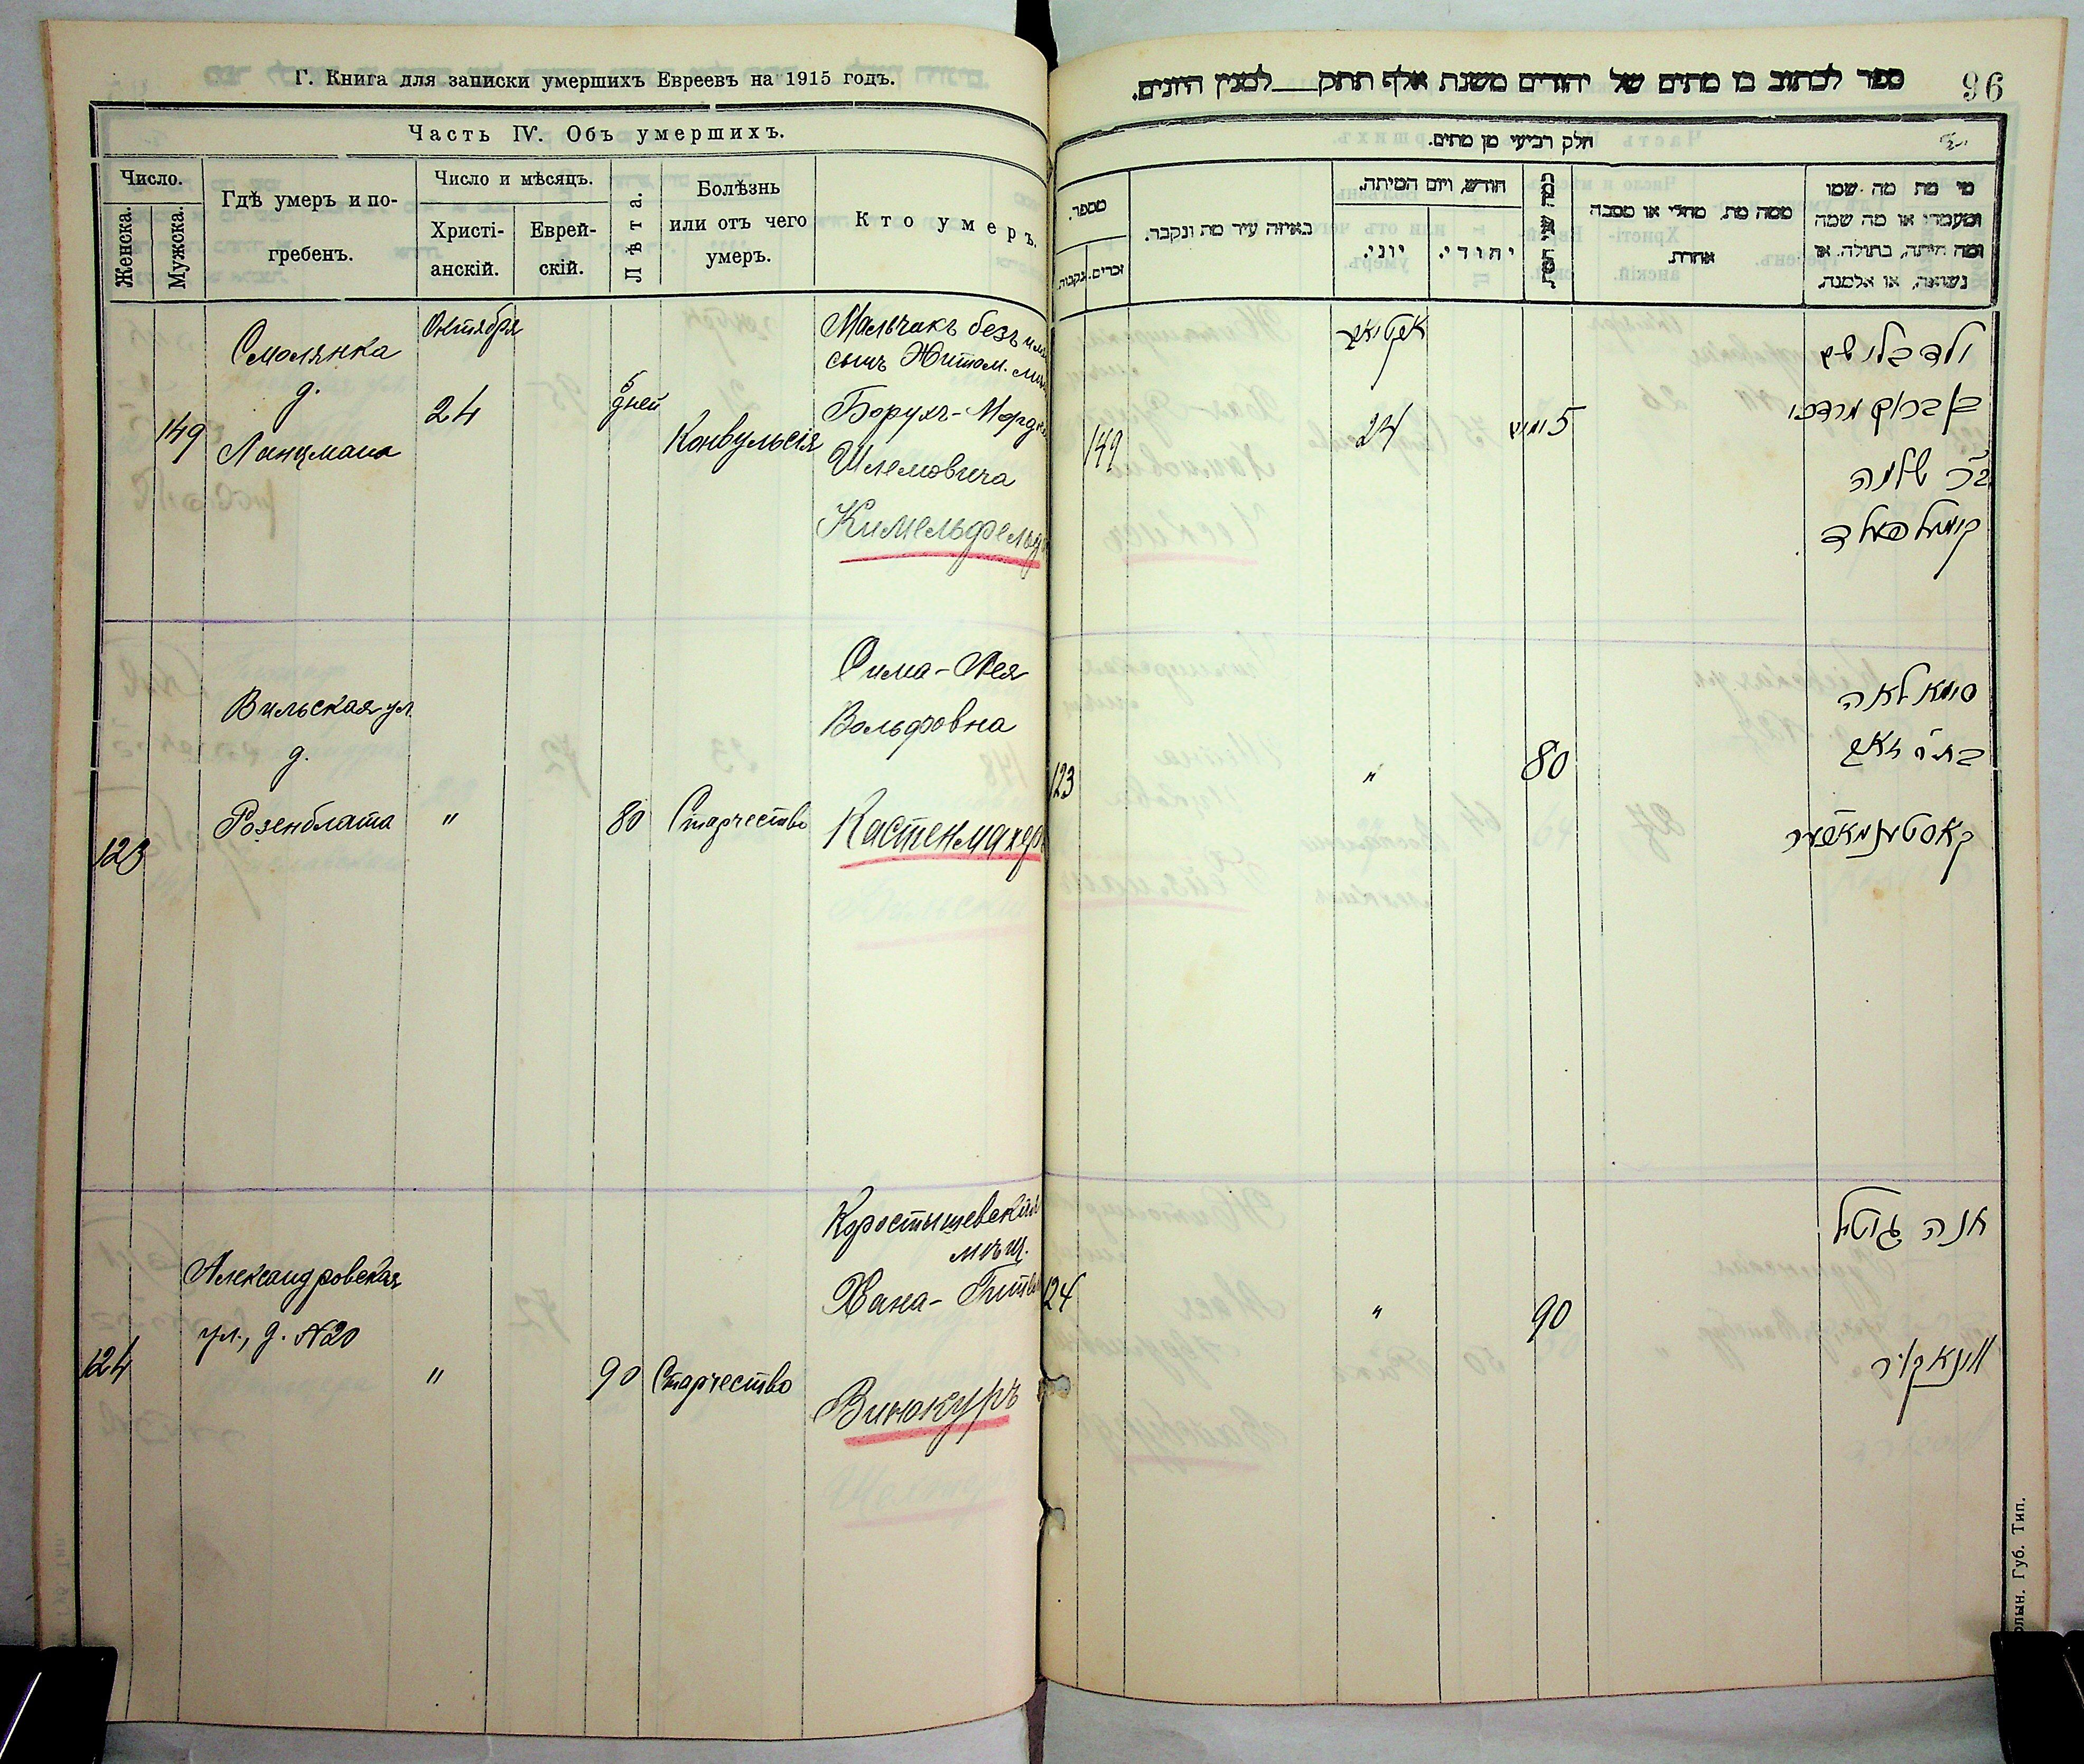 Г. Книга для записки умершихъ Евреевъ на 1915 годъ.
Часть IV. Объ умершихъ.
Число.
Женска.
Мужска.
Гдѣ умеръ и по-
гребенъ.
Число и мѣсяцъ.
Христі-
анскій.
Еврей-
скій.
Лѣта.
Болѣзнь
или отъ чего
умеръ.
Кто умеръ.
149
Смолянка
д.
Ланцмана
Октября
24
5
дней
Конвульсія
Мальчикъ безъ
сынъ Житом.
Борухъ-Мордко
Шлемовича
Кимельфельдъ
123
Вильская ул.
д.
Розенблата
"
80
Старчество
Сима-Лея
Вольфовна
Кастенмахеръ
124
Александровская
ул., д. №20
"
90
Старчество
Коростышевская
мѣщ.
Хана-Гитля
Винокуръ
ספר לכתוב בו מתים של יהודים משנת אלף תתק למנין היונים.
96
חלק רביעי מן מתים.
מספר.
נקבות.
זכרים.
באיזה עיר מת ונקבר.
חודש, ויום המיתה.
יוני.
יהודי.
כמה שני המת
ממה מת, מחלי או מסבה
אחרת.
מי מת מה שמו
ומעמדו או מה שמה
ומה היתה, בתולה, או
נשואה, או אלמנה.
149
אקטאבר
24
5 ימים
ילד בלי שם
בן ברוך מרדכי
ב"ר שלמה
קימעלפעלד
123
"
80
סימא לאה
בת ר' וואלף
קאסטענמאכער
124
"
90
חנה גיטל
ווינאקור
олын. Губ. Тип.